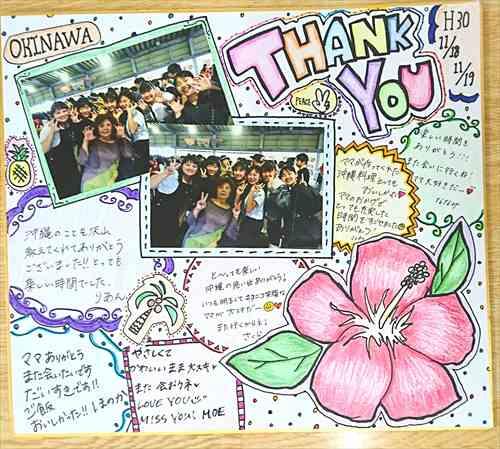 OKINAWA
THANK
YOU
H30
11/18
11/19
PEACE
楽しい時間を
ありがとう!!
また会いに行くね!
大好きだー
ママが作ってくれた
沖縄料理とっても
おいしかった
ママのおかげで
とっても充実した
時間をすごせた
ありがとう!
沖縄のこと沢山
教えてくれてありがとう
ございました!!とっても
楽しい時間でした。
りおん
とーっても楽しい
沖縄の思い出ありがとう!
いつも明るくてニコニコ笑顔な
ママが大好きだー
また行くからネ!
ママありがとう
また会いたいです
だいすきです!!
ご飯
おいしかった!! ほのか
やさしくて
かわいいまま大スキ♥
また会おうネ♥
LOVE YOU
MISS YOU! MOE